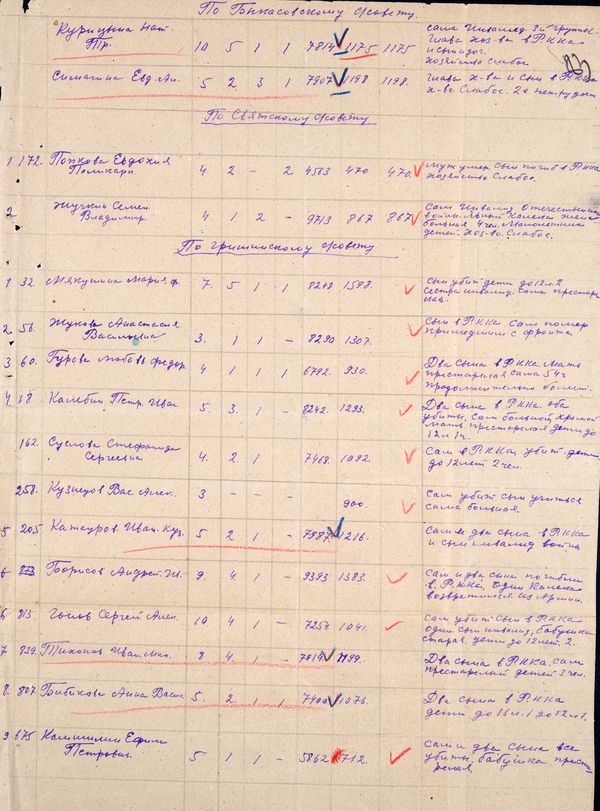 По Быкасовскому с/совету.
Курицына Нат. Сама инвалид 3й группы
Гр. 10 5 1 1 7814 1175 1175 глава хоз-ва в РККА
хозяйство слабое.
Симагина Евд. Ан. 5 2 3 1 7907 1198 1198. глава х-ва и сын в РККА
х-ва слабое. 2е нетрудосп
По Святскому с/совету
1 172. Попкова Евдокия муж умер. сын погиб в РККА
Поликарп. 4 2 - 2 4563 470 470. хозяйство слабое.
2 Жучкин Семен Сам инвалид отечественной
Владимир. 4 1 2 - 9713 867 867 войны. калека жена
больная, 4 чел. малолетних
детей. хоз-во. слабое.
По Гришинскому с/совету
1 32. Мякушина Мария Ф 7. 5 1 1 8248 1598. Сын убит дети до 12 л. 2
сестра инвалид. сама престарел
2. 56. Жукова Анастасия Сын в РККА сам помер
Васильевна 3. 1 1 - 8290 1307. пришедший с фронта
3 60. Гурова Любовь Федор. 4 1 1 1 6792. 930. Два сына в РККА. мать
престарелая сама 54 г
продолжительно болеет.
4 18 Калебин Петр. Иван. 5. 3. 1 - 8242. 1293. Два сына в РККА. оба
убиты, сам больной хромой
мать престарелая дети до
12 л 1 ч.
162. Суслова Стефанида Сам в РККА, убит. дети
Сергеевна 4. 2. 1 - 7468. 1092. до 12 лет 2 чел.
258. Кузнецов Вас. Алек. 3 - - - 900. Сам убит сын учиться
сама больная.
5 205 Кажуров. Иван. Куз. 5 2 1 - 7987 1216. Сам и два сына в РККА
и сын инвалид войны
6 873 Борисов Андрей. Ив. 9. 4. 1 - 9393 1383. Сам и два сына погибли
в РККА, один калека
возвратился из Армии.
6 813 Сергей Алек. 10 4 1 - 7254. 1041. Сам убит сын в РККА
один. сын инвалид, бабушка
старая. дети до 12 лет. 2
7 829. Тихонов Иван. Мих. 8 4. 1 - 7819 1199. Два сына в РККА. сам
престарелый детей 3 чел.
8. 807. Бибикова Анна Васил 5 2. 1 1 7400 1076. Два сына в РККА
дети до 16 л. 1 до 12 л 1.
9 675 Калинин Ефим Сам и два сына все
Петрович. 5 1 1 - 5862 712. убиты. бабушка преста
релая.